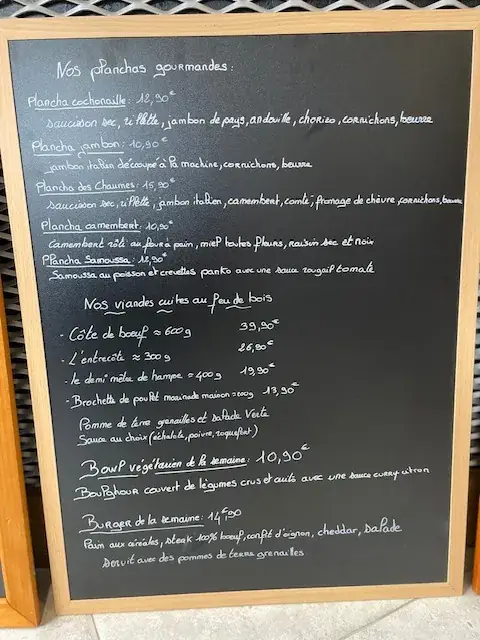 Nos planchas gourmandes:
Plancha cochonaille: 12,90€
saucisson sec, rillette, jambon de pays, andouille, chorizo, cornichons, beurre
Plancha jambon: 10,90€
jambon italien découpé à la machine, cornichons, beurre
Plancha des Chaumes: 15,90€
saucisson sec, rillette, jambon italien, camembert, comté, fromage de chèvre, cornichons, beurre
Plancha camembert: 10,90€
Camembert rôti au four à pain, miel toutes fleurs, raisin sec et noix
Plancha Samoussa: 12,90€
Samoussa au poisson et crevettes panko avec une sauce rougail tomate
Nos viandes cuites au feu de bois
- Côte de boeuf ≈ 600g 39,90€
- L'entrecôte ≈ 300g 26,90€
- le demi mètre de hampe ≈ 400g 19,90€
- Brochette de poulet marinade maison ≈ 13,90€
Pomme de terre grenailles et Salade Verte
Sauce au choix (échalote, poivre, roquefort)
Bowl végétarien de la semaine: 10,90€
Boulghour couvert de légumes crus et cuits avec une sauce curry citron
Burger de la semaine: 14,90€
Pain aux céréales, steak 100% boeuf, confit d'oignon, cheddar, Salade
Servit avec des pommes de terre grenailles